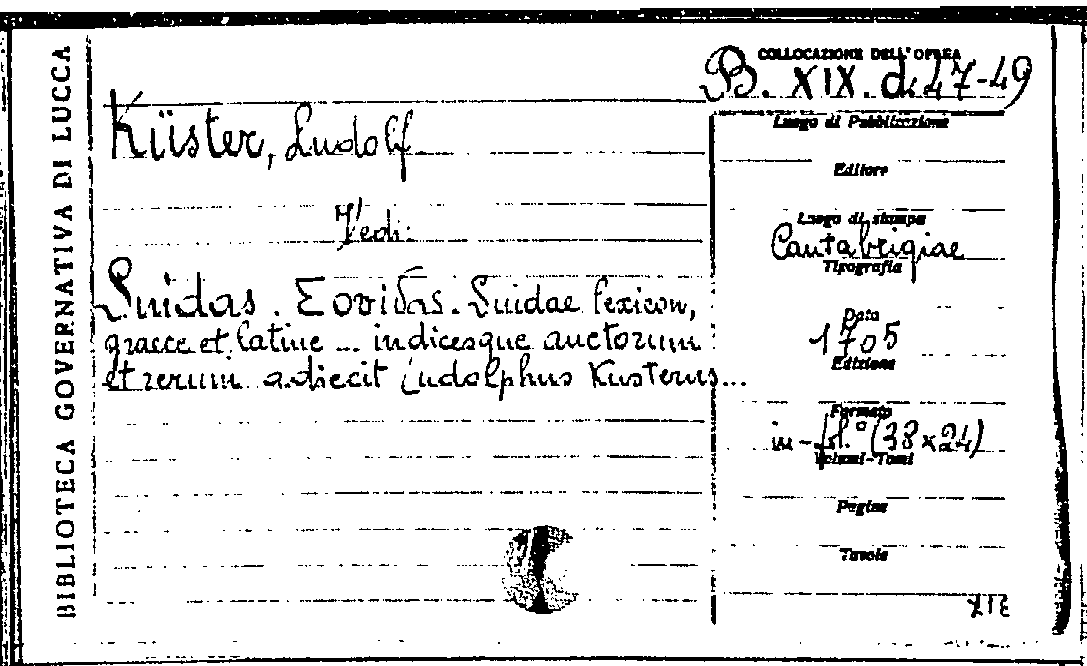 BIBLIOTECA GOVERNATIVA DI LUCCA
COLLOCAZIONE DELL'OPERA
B. XIX. d. 47-49
Küster, Ludolf
Vedi:
Suidas. Σουίδας. Suidae lexicon,
graece et latine ... indicesque auctorum
et rerum adiecit Ludolphus Kusterus...
Luogo di Pubblicazione
Editore
Luogo di stampa
Cantabrigiae
Tipografia
Data
1705
Edizione
Formato
in-fol.° (38x24)
Volumi-Tomi
Pagine
Tavole